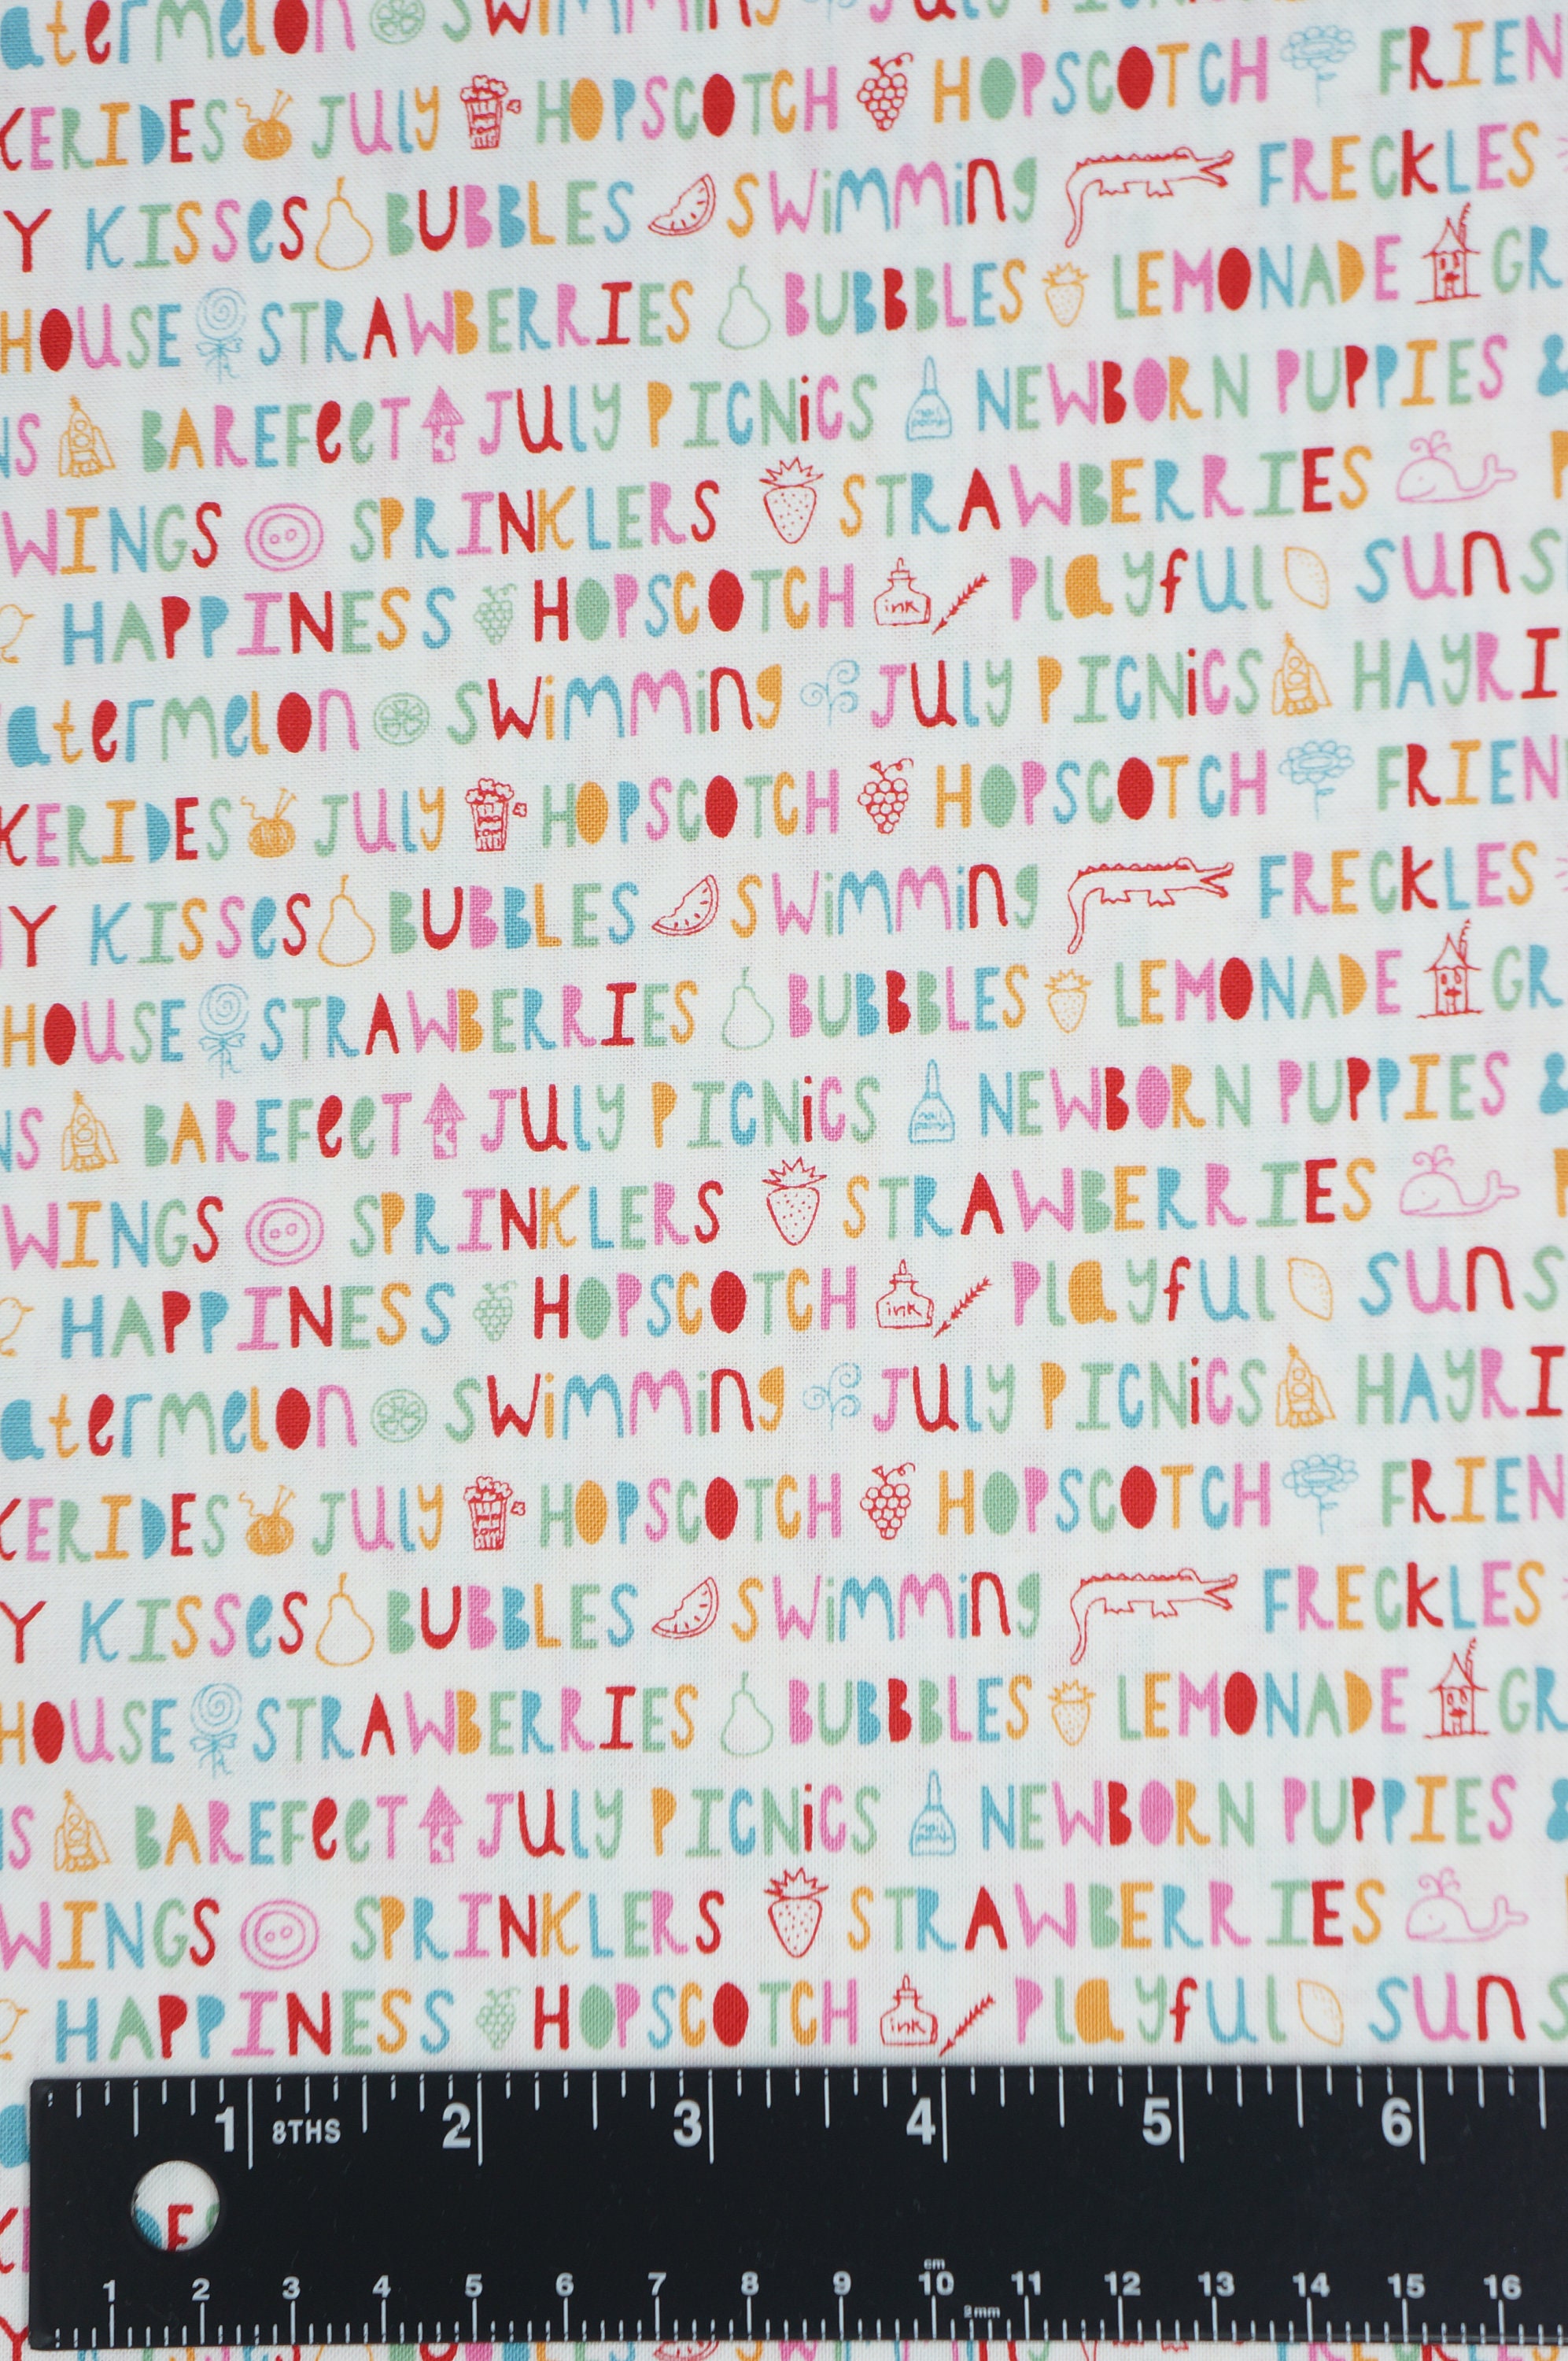 atermelon swimming July PIC
KERIDES July HOPSCOTCH HOPSCOTCH FRIEN
Y KISSeS BUBBLES SWimming FRECKLES
HOUSE STRAWBERRIES BUBBBLES LEMONADE GR
NS BAREFeeT July PICNiCS nail polish NEWBORN PUPPIES &
WINGS SPRINKLERS STRAWBERRIES
HAPPINESS HOPSCOTCH ink Playful sunS
atermelon swimming July PICNiCS HAYRI
KERIDES July HOPSCOTCH HOPSCOTCH FRIEN
Y KISSeS BUBBLES SWimming FRECKLES
HOUSE STRAWBERRIES BUBBBLES LEMONADE GR
NS BAREFeeT July PICNiCS nail polish NEWBORN PUPPIES &
WINGS SPRINKLERS STRAWBERRIES
HAPPINESS HOPSCOTCH ink Playful sunS
atermelon swimming July PICNiCS HAYRI
KERIDES July HOPSCOTCH HOPSCOTCH FRIEN
Y KISSeS BUBBLES SWimming FRECKLES
HOUSE STRAWBERRIES BUBBBLES LEMONADE GR
NS BAREFeeT July PICNiCS nail polish NEWBORN PUPPIES &
WINGS SPRINKLERS STRAWBERRIES
HAPPINESS HOPSCOTCH ink Playful sunS
1 8THS 2 3 4 5 6
E
cm
1 2 3 4 5 6 7 8 9 10 11 12 13 14 15 16
2 mm